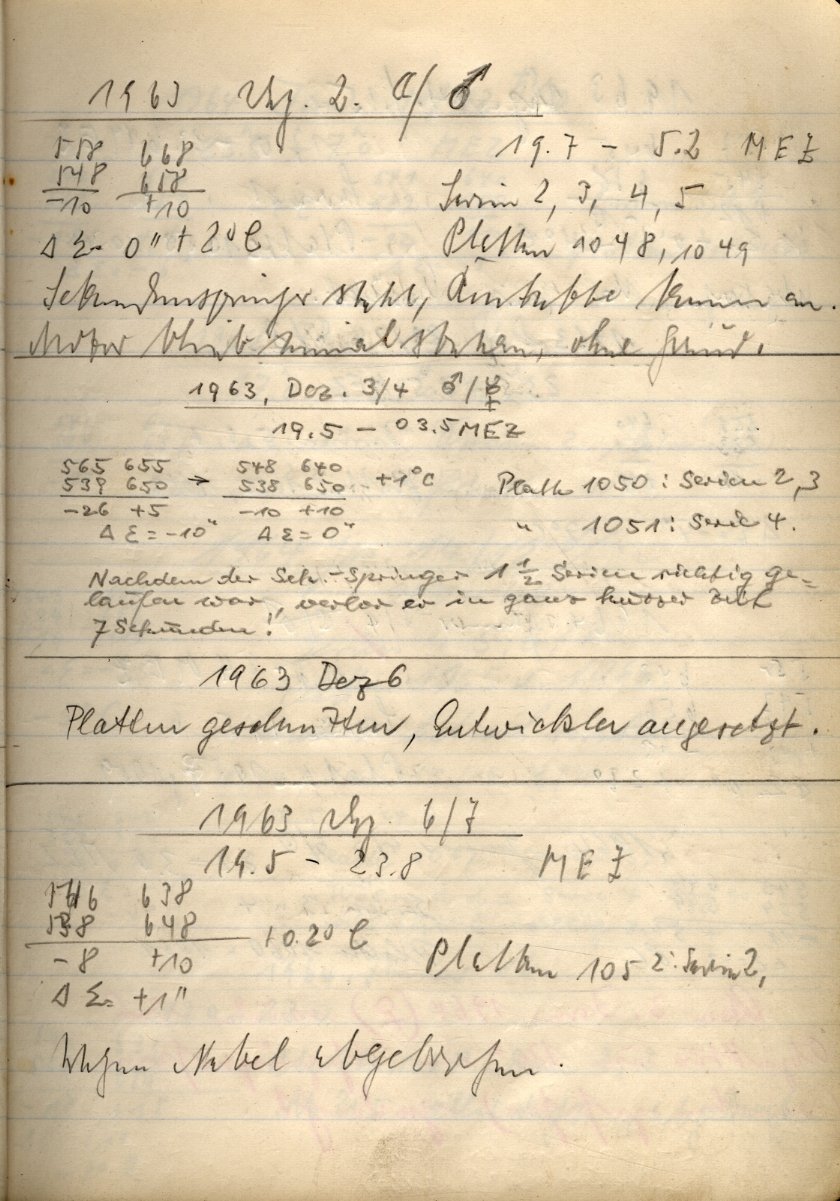 1963 Dez. 2. ☾/♂
19.7 – 5.2 MEZ
558 668
548 658
-10 +10
Serien 2, 3, 4, 5
Δ Σ = 0" + 2° C
Platten 1048, 1049
Sekundenspringer steht,
Motor blieb einmal stehen, ohne Grund.
1963, Dez. 3/4 ♂/☿
19.5 – 03.5 MEZ
565 655 → 548 640 +1°C
539 650 538 650
-26 +5 -10 +10
Δ Σ = -10" Δ Σ = 0"
Platte 1050: Serien 2, 3
" 1051: Serie 4.
Nachdem der Sek.-Springer 1 1/2 Serien richtig ge-
laufen war, verlor er in ganz kurzer Zeit
7 Sekunden!
1963 Dez 6
Platten geschnitten, Entwickler angesetzt.
1963 Dez. 6/7
19.5 – 23.8 MEZ
546 638
538 648
-8 +10
+0.2° C
Platten 1052: Serien 2,
Δ Σ = +1"
Wegen Nebel abgebrochen.